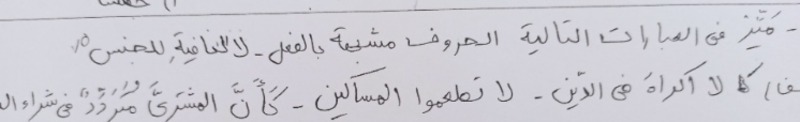 - مَيِّز في العبارات التالية الحروف مشبهة بالفعل - لا النافية للجنس
لا اكراهَ في الدّين - لا تطعموا المساكين - كَأَنَّ المشتريَّ مُتَرَدِّدٌ في شراء